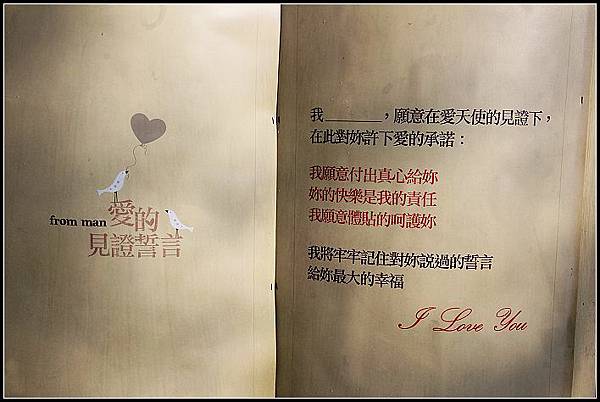 from man 愛的
見證誓言
我________，願意在愛天使的見證下，
在此對妳許下愛的承諾：
我願意付出真心給妳
妳的快樂是我的責任
我願意體貼的呵護妳
我將牢牢記住對妳說過的誓言
給妳最大的幸福
I Love You